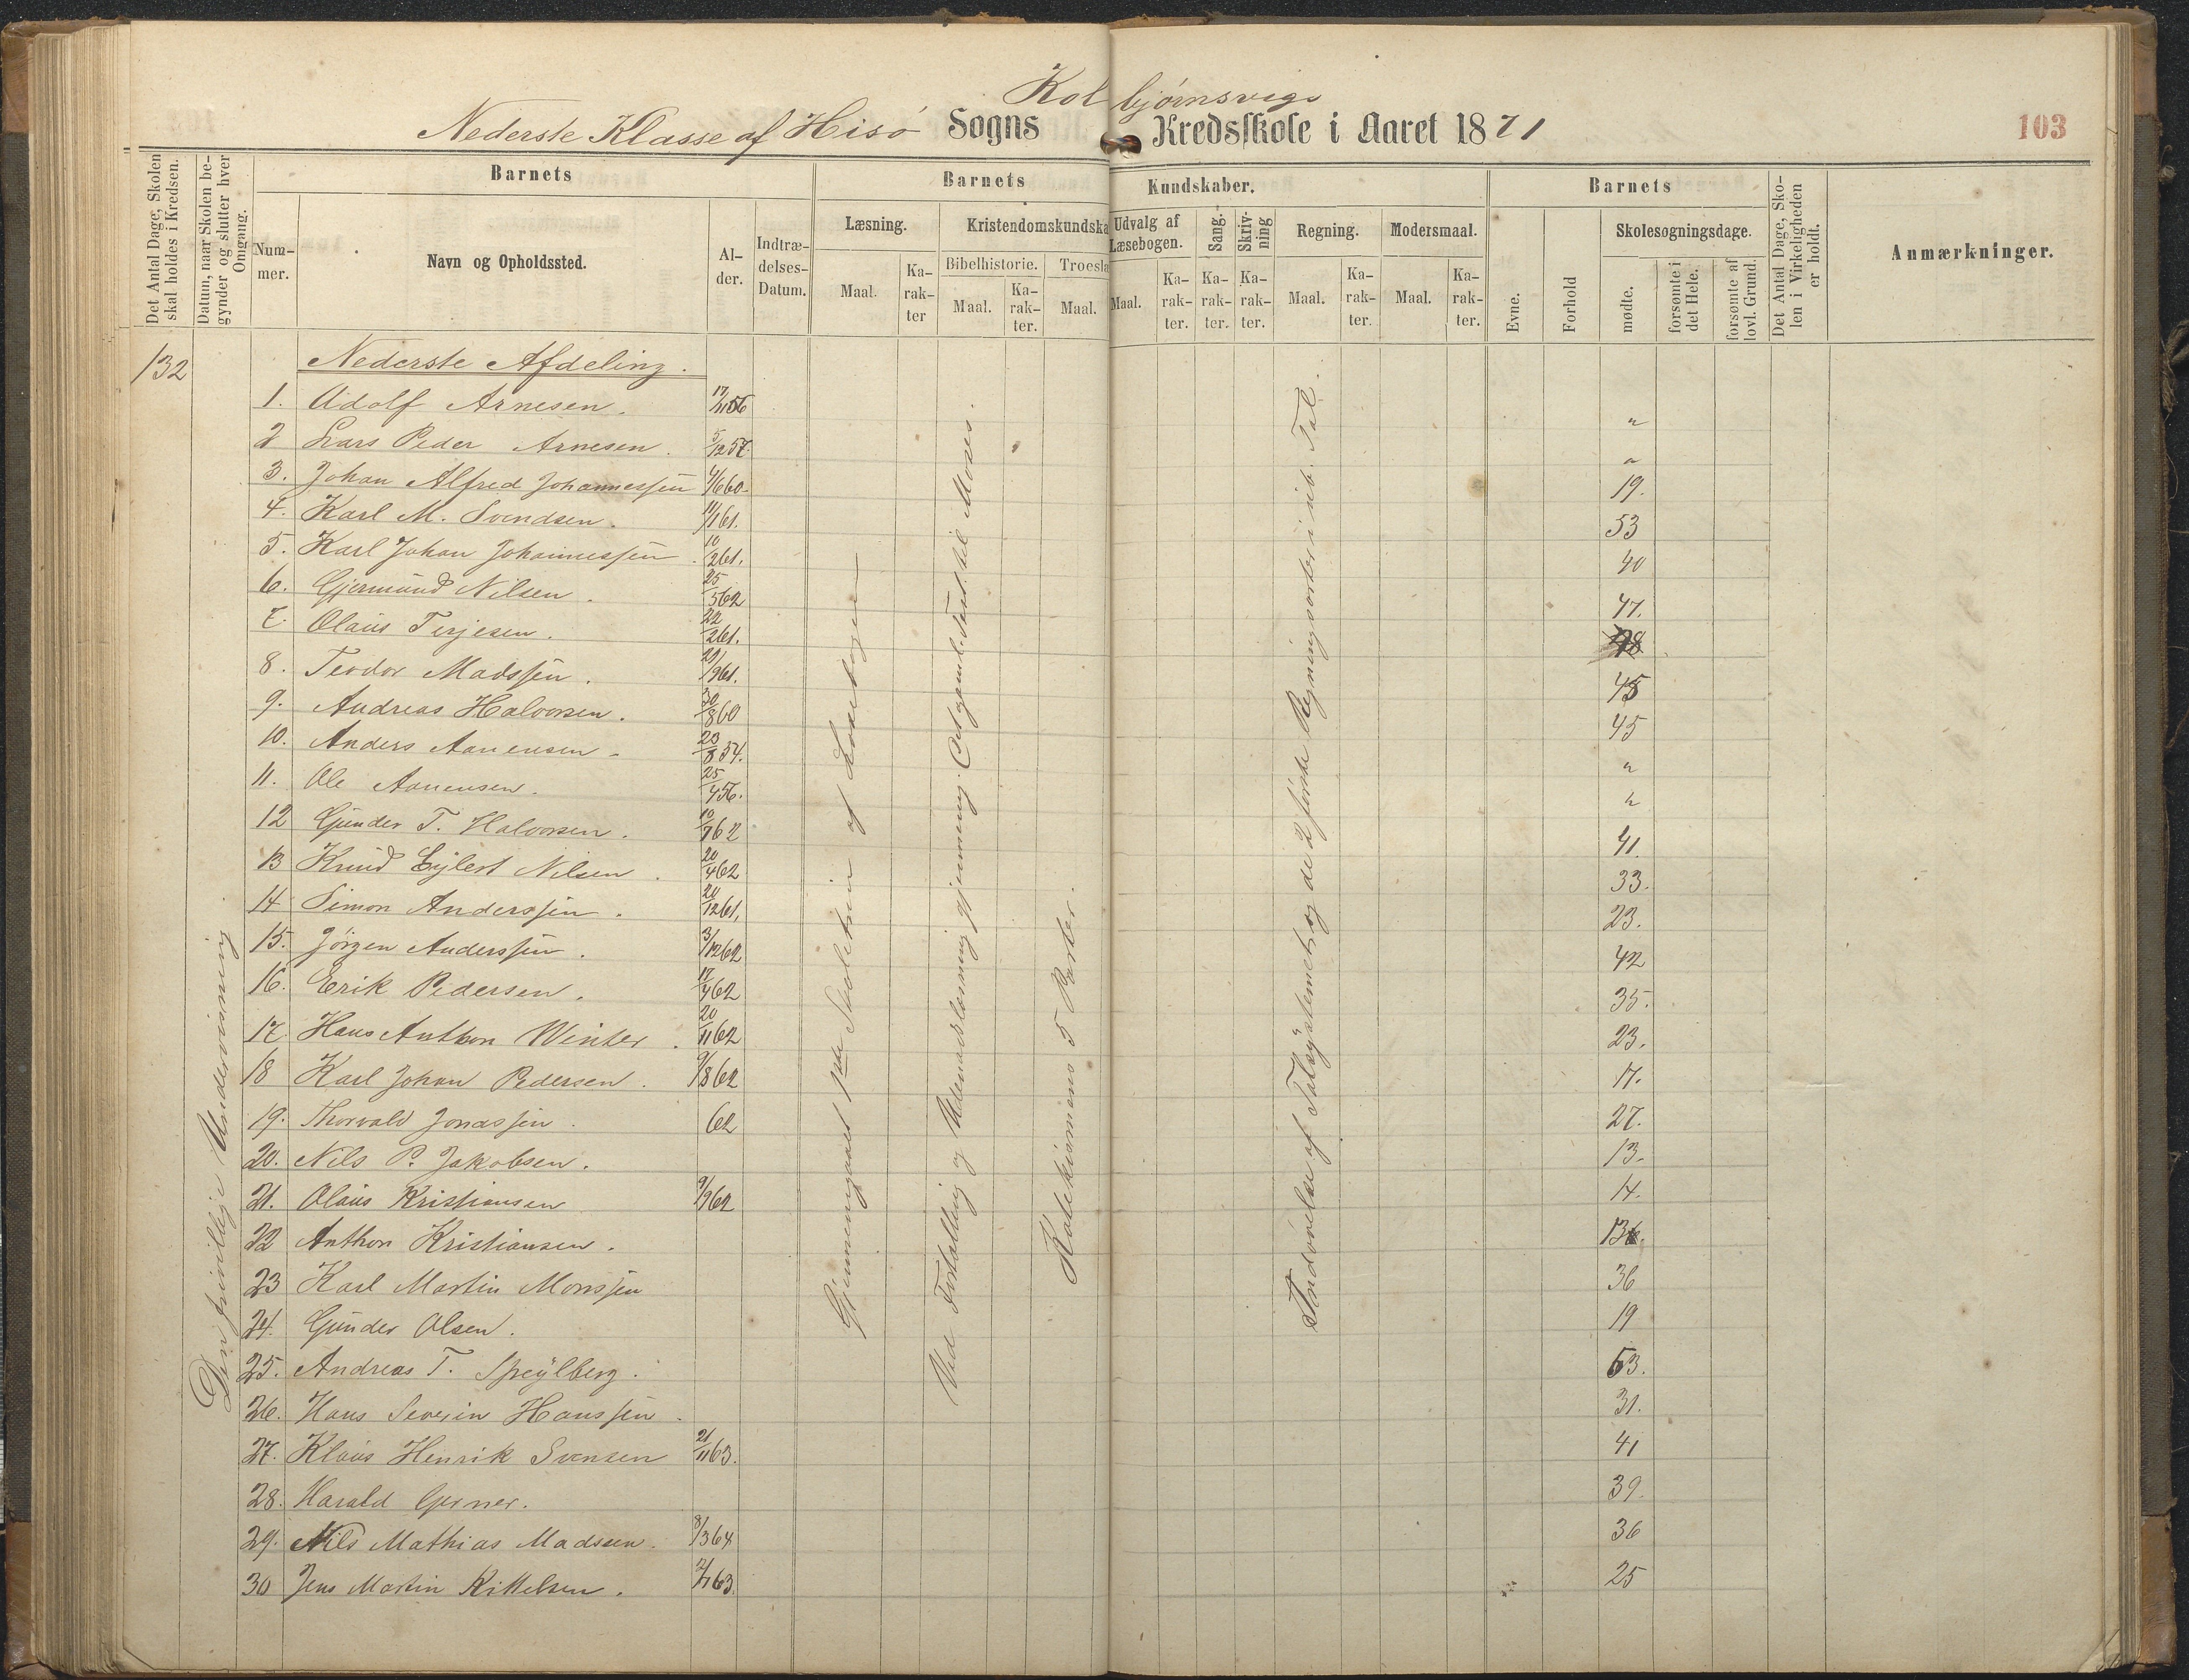 Kolbjørnsvigs
Nederste Klasse af Hisø Sogns Kredsskole i Aaret 1871
103
Det Antal Dage, Skolen skal holdes i Kredsen.
Datum, naar Skolen begynder og slutter hver Omgang.
Barnets
Nummer.
Navn og Opholdssted.
Alder.
Indtrædelses-Datum.
Barnets Kundskaber.
Læsning.
Maal.
Karakter
Kristendomskundska
Bibelhistorie.
Maal.
Karakter.
Troesla
Maal.
Udvalg af Læsebogen.
Maal.
Karakter.
Sang.
Karakter.
Skrivning
Karakter.
Regning.
Maal.
Karakter.
Modersmaal.
Maal.
Karakter.
Barnets
Evne.
Forhold
Skolesøgningsdage.
mødte.
forsømte i det Hele.
forsømte af lovl. Grund.
Det Antal Dage, Skolen i Virkeligheden er holdt.
Anmærkninger.
132
Nederste Afdeling.
1. Adolf Arnesen. 17/11 56 "
2 Lars Peder Arnesen. 5/12 57. "
3. Johan Alfred Johannessen 4/6 60. 19.
4. Karl M. Svendsen. 11/1 61. 53
5. Karl Johan Johannessen. 10/2 61. 40
6. Gjermund Nilsen. 25/5 62 47.
7. Olaus Terjesen. 22/2 61. 48
8. Teodor Madssen. 29/9 61. 45
9. Andreas Halvorsen. 30/8 60 45
10. Anders Aanensen. 20/8 54. "
11. Ole Aanensen. 25/4 56. "
12 Gunder T. Halvorsen. 10/7 62 41.
13 Knud Eylert Nilsen. 20/4 62 33.
14 Simon Anderssen. 20/12 61, 23.
15. Jørgen Anderssen. 3/12 62 42
16. Erik Pedersen. 17/4 62 35.
17. Hans Anthon Winter. 20/11 62 23.
18 Karl Johan Pedersen. 9/8 62 17.
19. Thorvald Jonassen. 62 27.
20. Nils P. Jakobsen. 13.
21. Olaus Kristiansen 9/9 62 14.
22 Anthon Kristiansen.
23 Karl Martin Monssen 36
24. Gunder Olsen. 19
25. Andreas T. Speylberg. 53.
26. Hans Severin Hanssen. 31.
27. Klaus Henrik Svensen 21/11 63. 41
28. Harald Gerner. 39.
29. Nils Mathias Madssen. 8/3 64 36
30 Jens Martin Kittelsen. 2/1 63. 25
Den frivillige Undervisning.
Gjennemgaaet 1ste Skoletrin af Læsebogen
Ved Fortælling og Udenadslæsning gjennemg. det gamle Test. til Moses.
Katekismens 5 Parter.
Indøvelse af Talsystemet og de 2 første Regningsarter i ub. Tal.